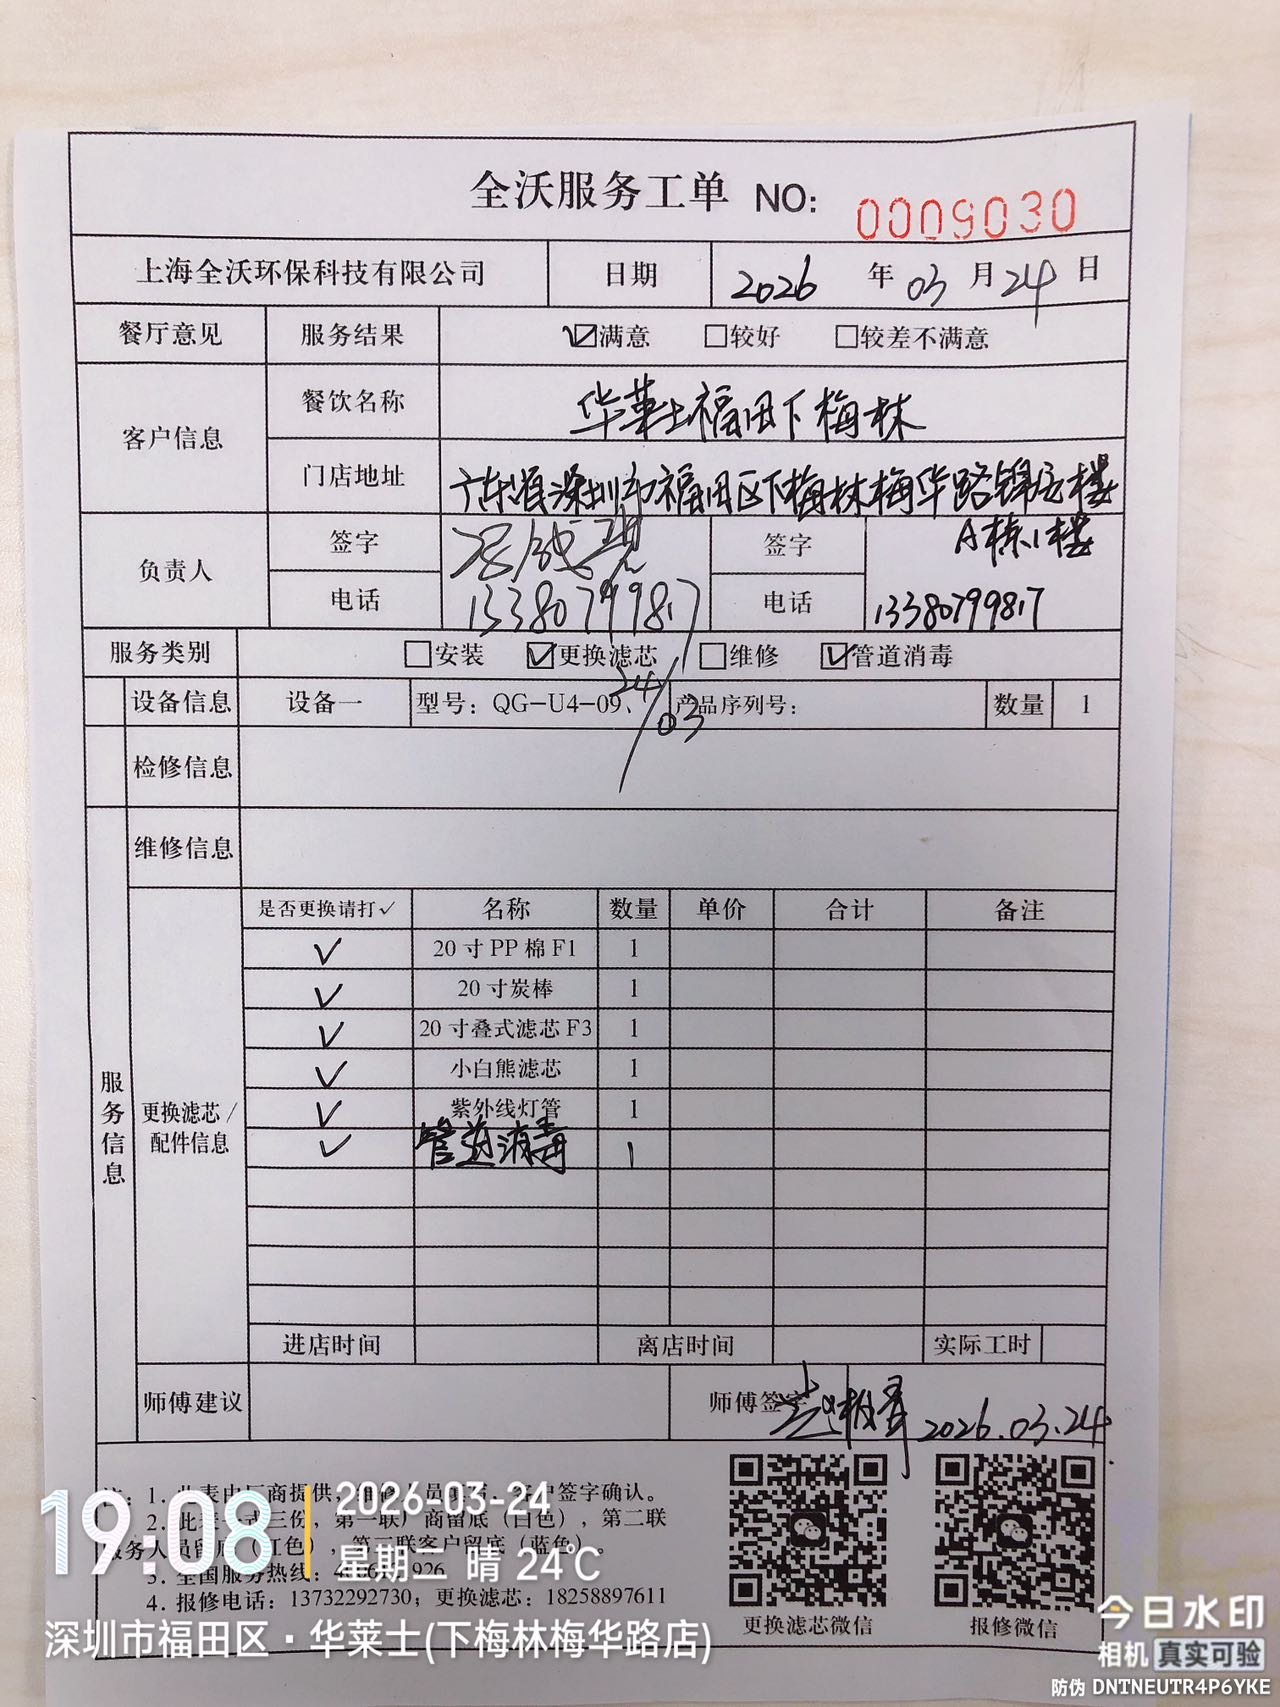 全沃服务工单 NO: 0009030
上海全沃环保科技有限公司 日期 2026 年 03 月 24 日
餐厅意见 服务结果 ☑满意 □较好 □较差不满意
客户信息 餐饮名称 华莱士福田下梅林
门店地址 广东省深圳市福田区下梅林梅华路锦宏楼
A栋1楼
负责人 签字 签字
电话 13380799817 电话 13380799817
服务类别 □安装 ☑更换滤芯 □维修 ☑管道消毒
24/03
设备信息 设备一 型号：QG-U4-09、 产品序列号： 数量 1
检修信息
维修信息
服务信息
更换滤芯/配件信息
是否更换请打✓ 名称 数量 单价 合计 备注
✓ 20寸PP棉F1 1
✓ 20寸炭棒 1
✓ 20寸叠式滤芯F3 1
✓ 小白熊滤芯 1
✓ 紫外线灯管 1
✓ 管道消毒 1
进店时间 离店时间 实际工时
师傅建议 师傅签字 2026.03.24
注：1. 此表由厂商提供，维修人员填写，客户签字确认。
2. 此表一式三份，第一联厂商留底（白色），第二联
服务人员留底（红色），第三联客户留底（蓝色）。
3. 全国服务热线：
4. 报修电话：13732292730；更换滤芯：18258897611
更换滤芯微信 报修微信
19:08 2026-03-24
星期二 晴 24℃
深圳市福田区·华莱士(下梅林梅华路店)
今日水印
相机 真实可验
防伪 DNTNEUTR4P6YKE